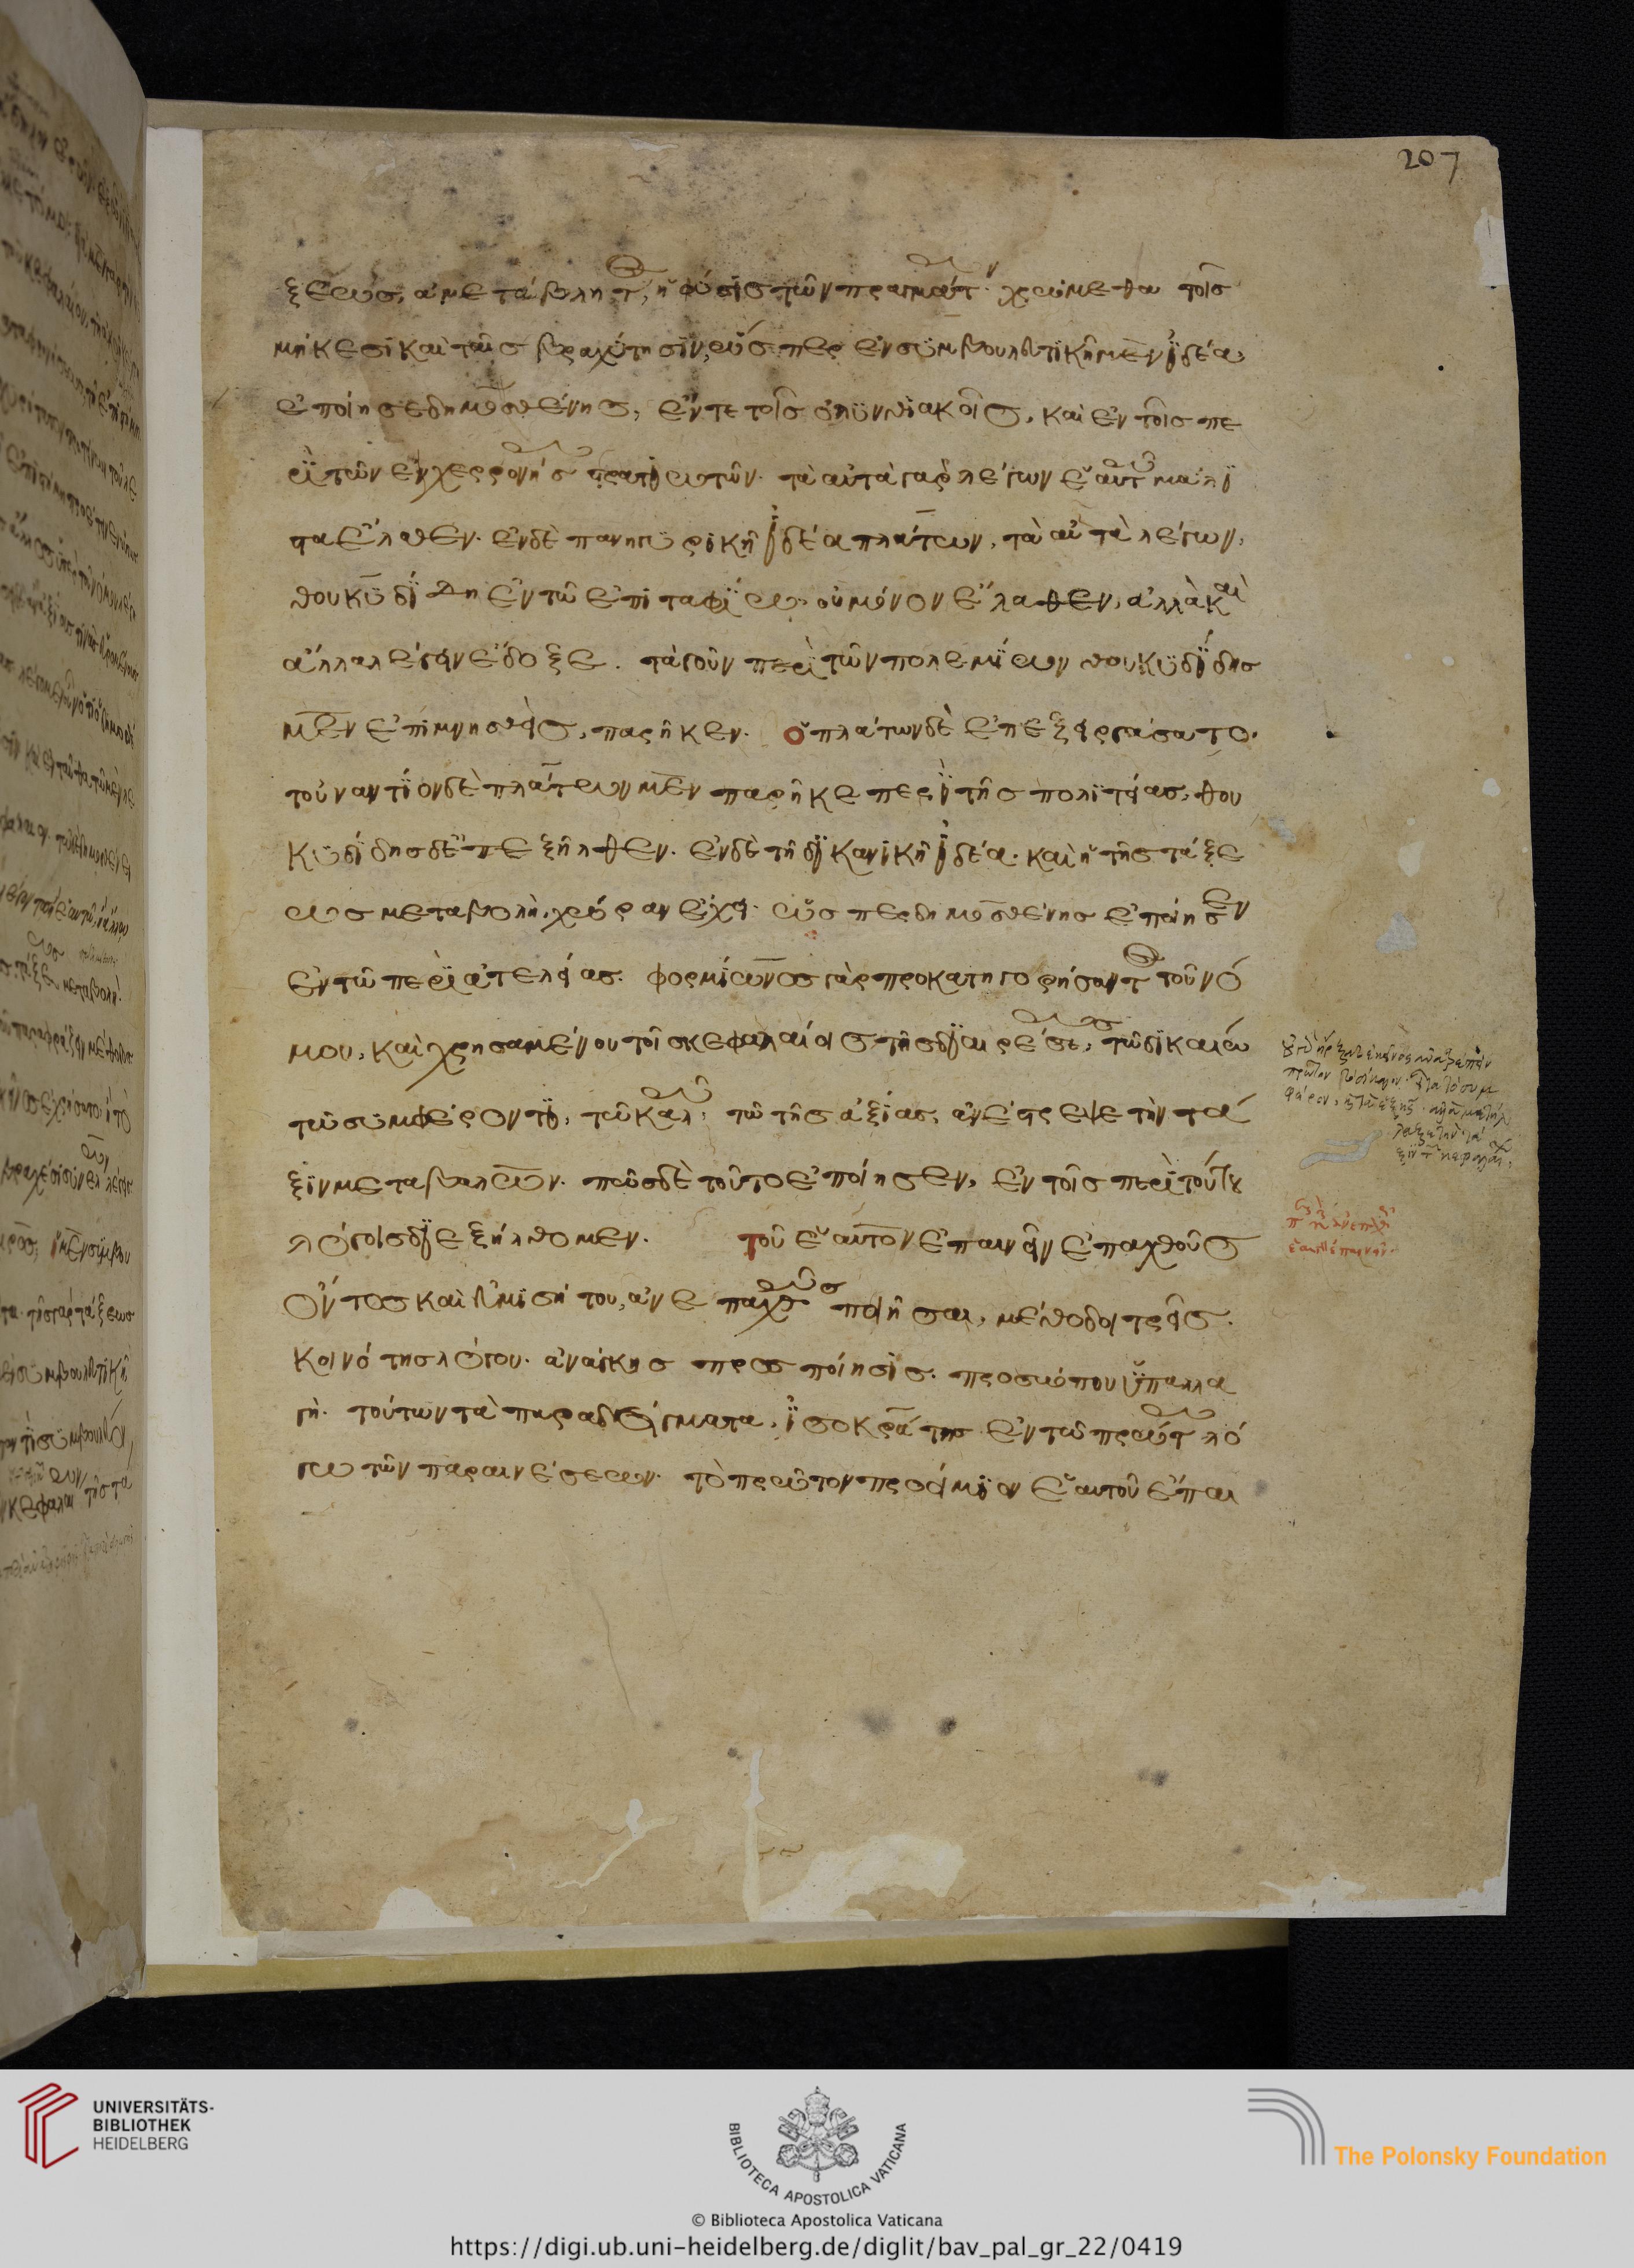 207
ξεως, ἀμετάβλητος ἡ φύσις τῶν πραγμάτων· χρώμεθα τοῖς
μήκεσι καὶ ταῖς βραχύτησιν, ὥσπερ ἐν συμβουλευτικῆ μὲν ἰδέα
ἐποίησε δημοσθένης, ἔν τε τοῖς ὀλυνθιακοῖς, καὶ ἐν τοῖς πε
ρὶ τῶν ἐν χερρονήσω στρατιωτῶν· τὰ αὐτὰ γὰρ λέγων ἑαυτῶ μάλι
στα ἔλαθεν· ἐν δὲ πανηγυρικῆ ἰδέα πλάτων, τὰ αὐτὰ λέγων,
θουκυδίδη ἐν τῶ ἐπιταφίω, οὐ μόνον ἔλαθεν, ἀλλὰ καὶ
ἄλλα λέγειν ἔδοξε. τὰ γοῦν περὶ τῶν πολεμίων θουκυδίδης
μὲν ἐπιμνησθεὶς, παρῆκεν. ὁ πλάτων δὲ ἐπεξειργάσατο.
τοὐναντίον δὲ πλάτων μὲν παρῆκε περὶ τῆς πολιτείας, θου
κυδίδης δὲ ἐπεξῆλθεν. ἐν δὲ τῆ δικανικῆ ἰδέα. καὶ ἡ τῆς τάξε
ως μεταβολὴ, χώραν ἔχει. ὥσπερ δημοσθένης ἐποίησεν
ἐν τῶ περὶ ἀτελείας. φορμίωνος γὰρ προκατηγορήσαντος τοῦ νό
μου, καὶ χρησαμένου τοῖς κεφαλαίοις τῆς διαιρέσεως, τῶ δικαίω
τῶ συμφέροντι, τῶ καλῶ, τῶ τῆς ἀξίας, ἀνέστρεψε τὴν τά
ξιν μεταβαλών. πῶς δὲ τοῦτο ἐποίησεν, ἐν τοῖς περὶ τούτου
λόγοις διεξήλθομεν. τοῦ ἑαυτὸν ἐπαινεῖν ἐπαχθοῦς
ὄντος καὶ εὐμισήτου, ἀνεπαχθῶς ποιῆσαι, μέθοδοι τρεῖς.
κοινότης λόγου. ἀνάγκης προσποίησις. προσώπου ὑπαλλα
γὴ. τούτων τὰ παραδείγματα, ἰσοκράτης ἐν τῶ πρώτω λό
γω τῶν παραινέσεων. τὸ πρῶτον προοίμιον ἑαυτοῦ ἔπαι
UNIVERSITÄTS-
BIBLIOTHEK
HEIDELBERG
BIBLIOTECA APOSTOLICA VATICANA
The Polonsky Foundation
© Biblioteca Apostolica Vaticana
https://digi.ub.uni-heidelberg.de/diglit/bav_pal_gr_22/0419